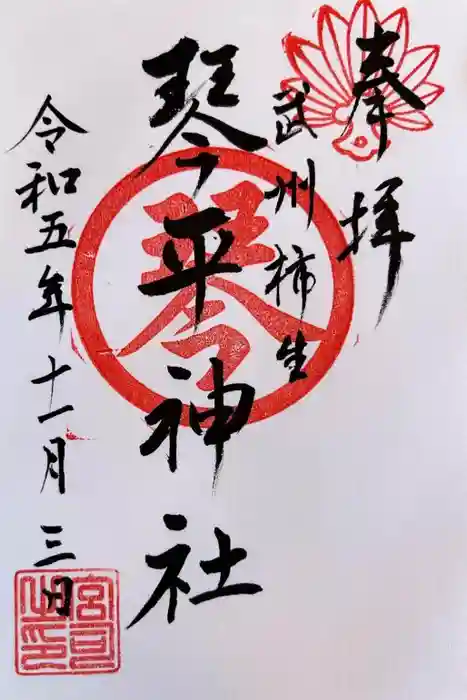 奉拝
武州柿生
琴平神社
令和五年十一月三日
琴
宮司之印